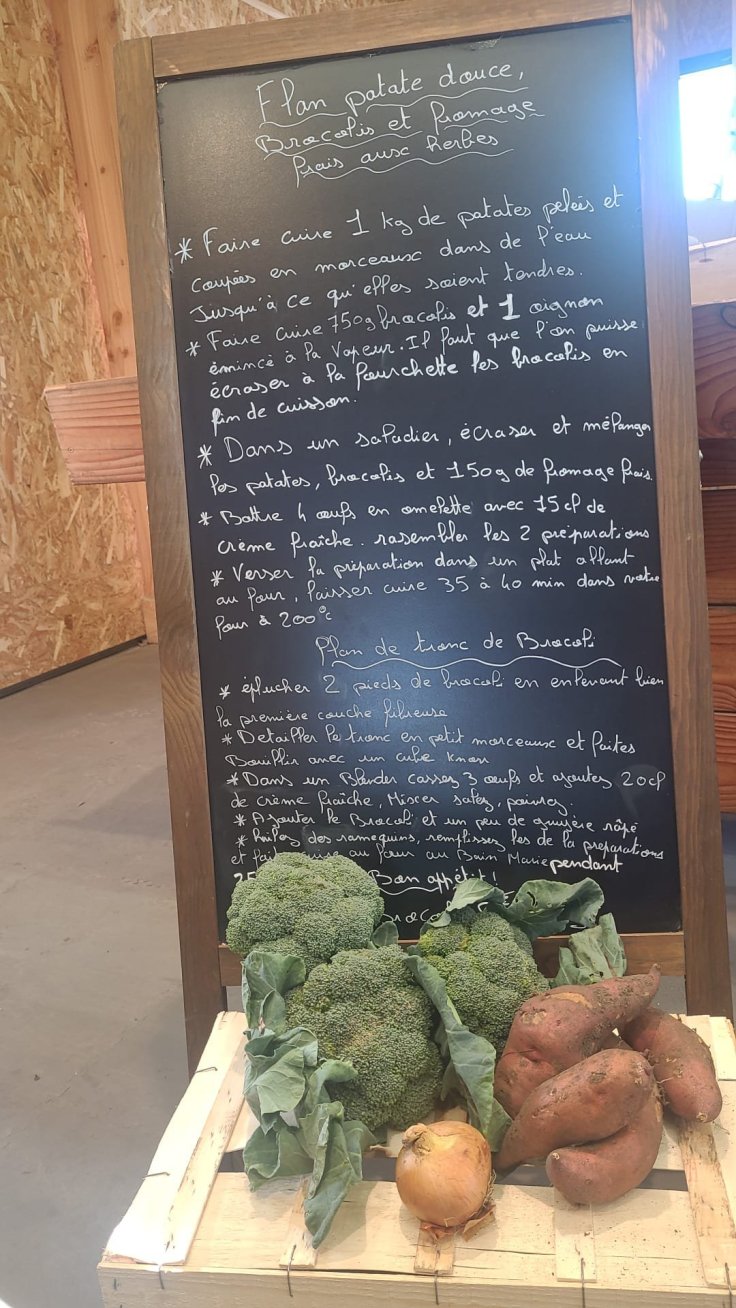 Flan patate douce,
Brocolis et fromage
frais aux herbes
* Faire cuire 1 kg de patates pelées et
coupées en morceaux dans de l'eau
Jusqu'à ce qu'elles soient tendres.
* Faire cuire 750g brocolis et 1 oignon
émincé à la vapeur. Il faut que l'on puisse
écraser à la fourchette les brocolis en
fin de cuisson.
* Dans un saladier, écraser et mélanger
les patates, brocolis et 150g de fromage frais.
* Battre 4 œufs en omelette avec 15 cl de
crème fraîche. rasembler les 2 préparations
* Verser la préparation dans un plat allant
au four, laisser cuire 35 à 40 min dans votre
four à 200°c
Flan de tronc de Brocoli
* éplucher 2 pieds de brocoli en enlevant bien
la première couche fibreuse
* Detailler le tronc en petit morceaux et faites
Bouillir avec un cube knorr
* Dans un Blender cassez 3 œufs et ajoutez 20cl
de crème fraîche, Mixer salez, poivrez.
* Ajouter le Brocoli et un peu de gruyère râpé
* huilez des ramequins, remplissez les de la préparations
et au four au Bain Marie pendant
Bon appétit!